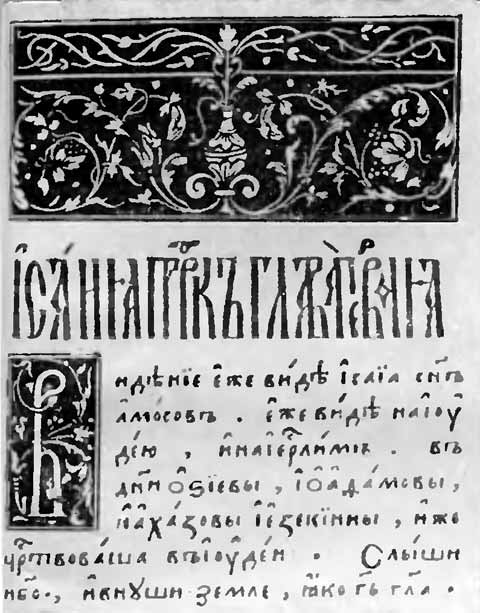 І҆СА́ИꙖ ПРР҇КЪ ГЛАВА̀ ПЕРВАꙖ
Видѣнїе є҆же ви́дѣ і҆саїа сн҃ъ
а҆мо́совъ . є҆же ви́дѣ на і҆оу҆
де́ю , и҆ на і҆ерⷭ҇лимъ . въ
дн҃и ѻ҆ѕїевы , і҆ѻ҆а҆да́мовы ,
и҆ а҆ха́зовы і҆е҆зекїины , и҆же
црⷭ҇твова́ша въ і҆оу҆де́и . Слы́ши
нб҃о ., и҆ внꙋши земле , ꙗ҆ко гь҃ гл҃а .